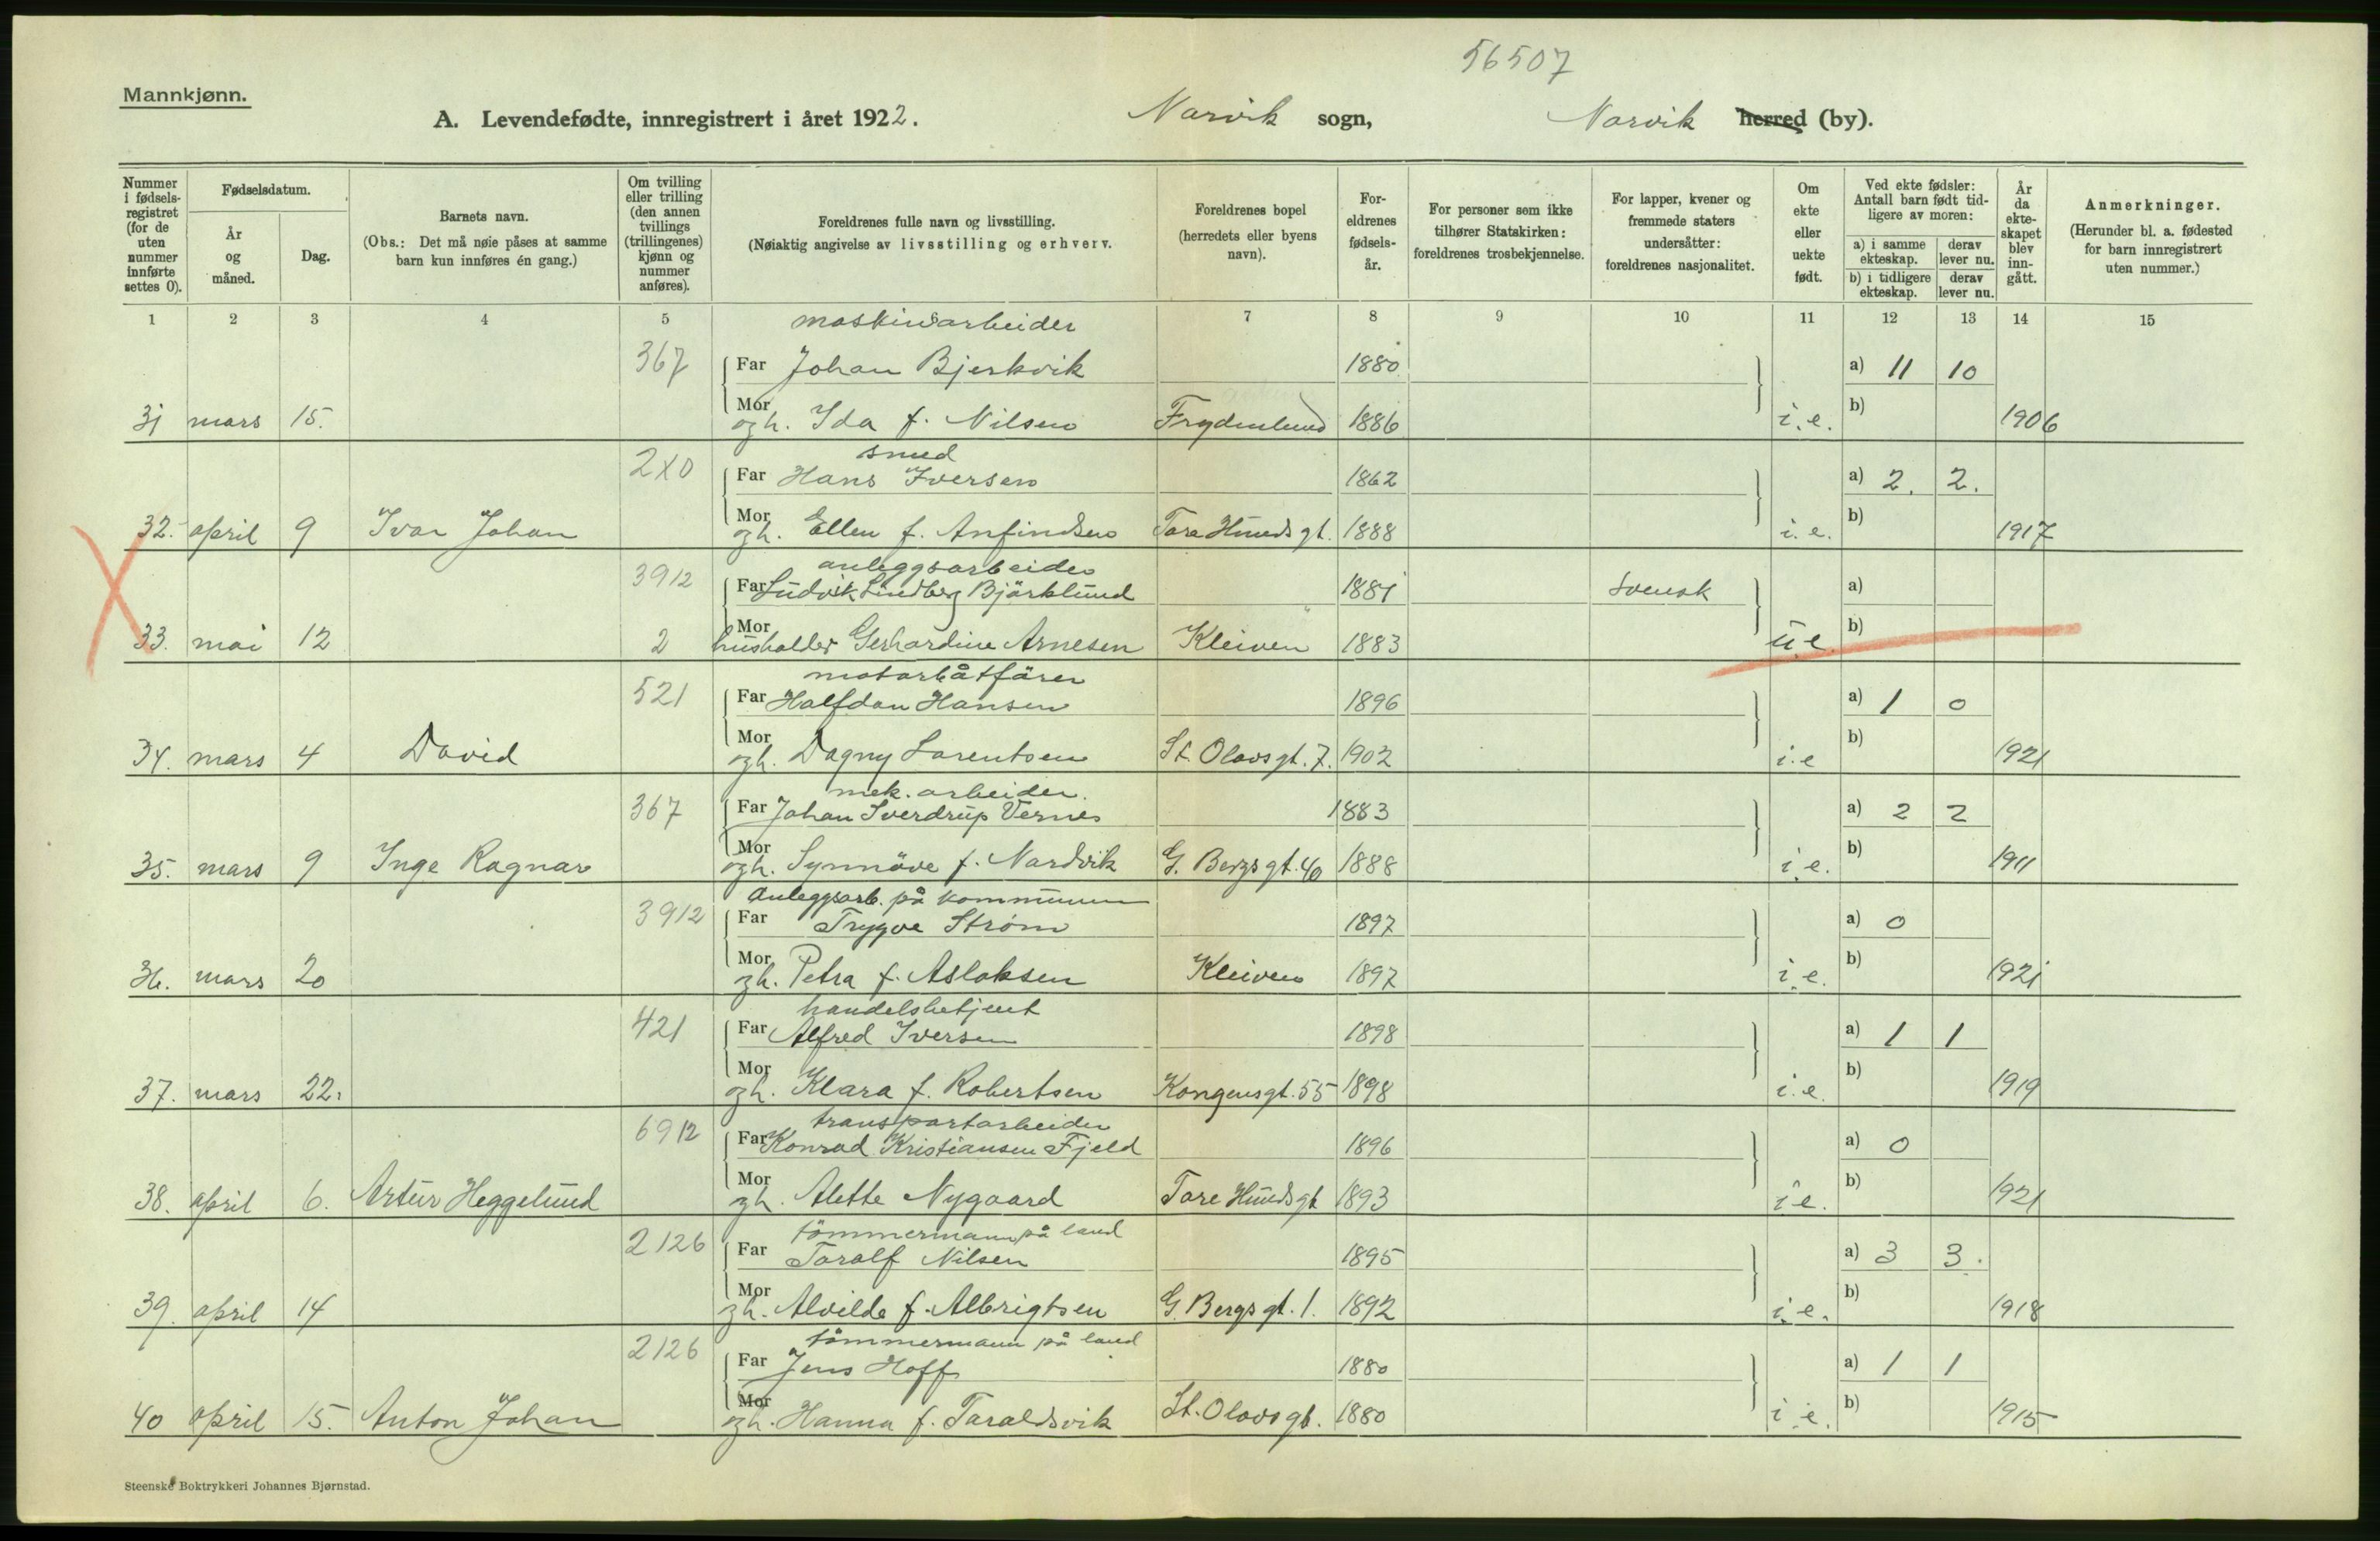 56507
Mannkjønn.
A. Levendefødte, innregistrert i året 1922. Narvik sogn, Narvik herred (by).
Nummer i fødselsregistret (for de uten nummer innførte settes 0).
Fødselsdatum.
År og måned.
Dag.
Barnets navn.
(Obs.: Det må nøie påses at samme barn kun innføres én gang.)
Om tvilling eller trilling (den annen tvillings (trillingenes) kjønn og nummer anføres).
Foreldrenes fulle navn og livsstilling.
(Nøiaktig angivelse av livsstilling og erhverv.
Foreldrenes bopel (herredets eller byens navn).
Foreldrenes fødselsår.
For personer som ikke tilhører Statskirken: foreldrenes trosbekjennelse.
For lapper, kvener og fremmede staters undersåtter: foreldrenes nasjonalitet.
Om ekte eller uekte født.
Ved ekte fødsler: Antall barn født tidligere av moren:
a) i samme ekteskap. derav lever nu.
b) i tidligere ekteskap. derav lever nu.
År da ekteskapet blev inngått.
Anmerkninger.
(Herunder bl. a. fødested for barn innregistrert uten nummer.)
1 2 3 4 5 7 8 9 10 11 12 13 14 15
maskinarbeider
367 Far Johan Bjerkvik 1880 a) 11 10
31 mars 15. Mor og h. Ida f. Nilsen Frydenlund 1886 i.e. b) 1906
smed
2X0 Far Hans Iversen 1862 a) 2. 2.
32. april 9 Ivar Johan Mor og h. Ellen f. Anfindsen Tore Hunds gt. 1888 i.e. b) 1917
anleggsarbeider
3912 Far Ludvik Lindberg Bjärklund 1881 svensk a)
33. mai 12 2 Mor husholder Gerhardine Arnesen Kleiven 1883 u.e. b)
motorbåtfører
521 Far Halfdan Hansen 1896 a) 1 0
34. mars 4 David Mor og h. Dagny Lorentsen St. Olavsgt. 7. 1902 i.e b) 1921
mek. arbeider.
367 Far Johan Sverdrup Vernes 1883 a) 2 2
35. mars 9 Inge Ragnar Mor og h. Synnöve f. Nardvik G. Bergs gt. 40 1888 i.e. b) 1911
Anleggsarb. på kommunen
3912 Far Trygve Strøm 1897 a) 0
36. mars 20 Mor og h. Petra f. Aslaksen Kleiven 1897 i.e. b) 1921
handelsbetjent
421 Far Alfred Iversen 1898 a) 1 1
37. mars 22. Mor og h. Klara f. Robertsen Kongensgt. 55 1898 i.e. b) 1919
transportarbeider
6912 Far Konrad Kristiansen Fjeld 1896 a) 0
38. april 6. Artur Heggelund Mor og h. Alette Nygaard Tore Hunds gt 1893 i.e. b) 1921
tömmermann på land
2126 Far Toralf Nilsen 1895 a) 3 3.
39. april 14 Mor og h. Alvilde f. Albrigtsen G. Bergs gt. 1. 1892 i.e. b) 1918
tömmermann på land
2126 Far Jens Hoff 1880 a) 1 1
40 april 15. Anton Johan Mor og h. Hanna f. Taraldsvik St. Olavs gt. 1880 i.e. b) 1915
Steenske Boktrykkeri Johannes Bjørnstad.